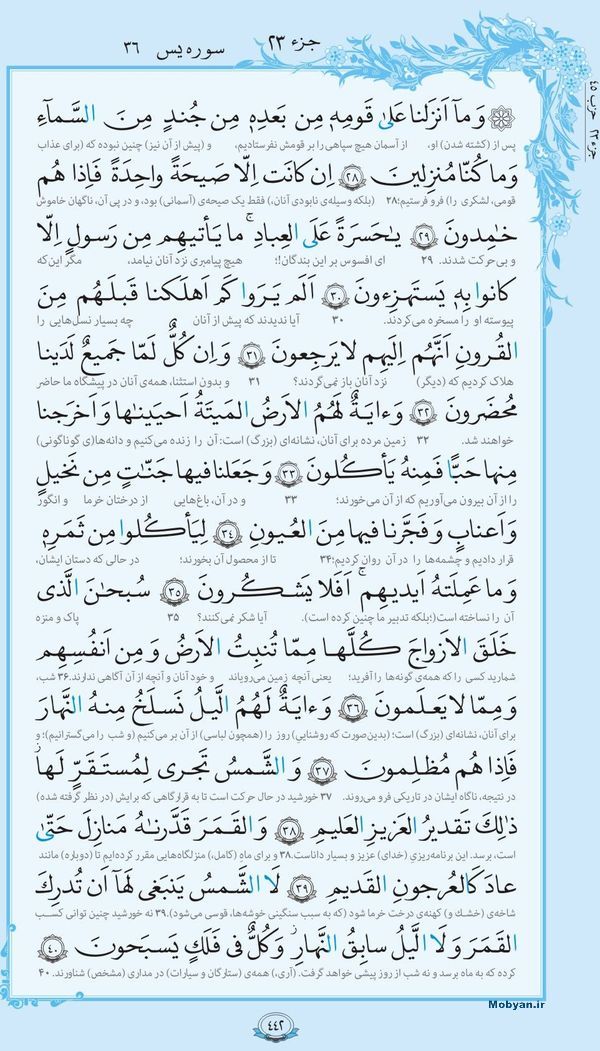 جزء ۲۳
سوره یس ۳۶
حزب ۴۵
جزء ۲۳
وَمآ اَنزَلنا عَلىٰ قَومِهٖ مِن بَعدِهٖ مِن جُندٍ مِنَ السَّمآءِ
پس از (کشته شدن) او، از آسمان هیچ سپاهی را بر قومش نفرستادیم، و (پیش از آن نیز) چنین نبوده که (برای عذاب
وَما كُنّا مُنزِلينَ ۲۸ اِن كانَت اِلّا صَيحَةً واحِدَةً فَاِذا هُم
قومی، لشکری را) فرو فرستیم؛۲۸ (بلکه وسیله‌ی نابودی آنان،) فقط یک صیحه‌ی (آسمانی) بود، و در پی آن، ناگهان خاموش
خٰمِدونَ ۲۹ يٰحَسرَةً عَلَى العِبادِ ۚ ما يَأتيهِم مِن رَسولٍ اِلّا
و بی‌حرکت شدند. ۲۹ ای افسوس بر این بندگان!؛ هیچ پیامبری نزد آنان نیامد، مگر این‌که
كانوا بِهٖ يَستَهزِءونَ ۳۰ اَلَم يَرَوا كَم اَهلَكنا قَبلَهُم مِنَ
پیوسته او را مسخره می‌کردند. ۳۰ آیا ندیدند که پیش از آنان چه بسیار نسل‌هایی را
القُرونِ اَنَّهُم اِلَيهِم لا يَرجِعونَ ۳۱ وَاِن كُلٌّ لَمّا جَميعٌ لَدَينا
هلاک کردیم که (دیگر) نزد آنان باز نمی‌گردند؟ ۳۱ و بدون استثنا، همه‌ی آنان در پیشگاه ما حاضر
مُحضَرونَ ۳۲ وَءايَةٌ لَهُمُ الاَرضُ المَيتَةُ اَحيَينٰها وَاَخرَجنا
خواهند شد. ۳۲ زمین مرده برای آنان، نشانه‌ای (بزرگ) است: آن را زنده می‌کنیم و دانه‌ها(ی گوناگونی)
مِنها حَبًّا فَمِنهُ يَأكُلونَ ۳۳ وَجَعَلنا فيها جَنّٰتٍ مِن نَخيلٍ
را از آن بیرون می‌آوریم که از آن می‌خورند؛ ۳۳ و در آن، باغ‌هایی از درختان خرما و انگور
وَاَعنابٍ وَفَجَّرنا فيها مِنَ العُيونِ ۳۴ لِيَأكُلوا مِن ثَمَرِهٖ
قرار دادیم و چشمه‌ها را در آن روان کردیم؛۳۴ تا از محصول آن بخورند؛ در حالی که دستان ایشان،
وَما عَمِلَتهُ اَيديهِم ۚ اَفَلا يَشكُرونَ ۳۵ سُبحٰنَ الَّذى
آن را نساخته است(؛بلکه تدبیر ما چنین کرده است). آیا شکر نمی‌کنند؟ ۳۵ پاک و منزه
خَلَقَ الاَزواجَ كُلَّها مِمّا تُنبِتُ الاَرضُ وَمِن اَنفُسِهِم
شمارید کسی را که همه‌ی گونه‌ها را آفرید؛ یعنی آنچه زمین می‌رویاند و خود آنان و آنچه از آن آگاهی ندارند.۳۶ شب،
وَمِمّا لا يَعلَمونَ ۳۶ وَءايَةٌ لَهُمُ الَّيلُ نَسلَخُ مِنهُ النَّهارَ
برای آنان، نشانه‌ای (بزرگ) است؛ (بدین‌صورت که روشنایی) روز را (همچون لباسی) از آن بر می‌کنیم (و شب را می‌گسترانیم)؛ و
فَاِذا هُم مُظلِمونَ ۳۷ وَالشَّمسُ تَجرى لِمُستَقَرٍّ لَها ۚ
در نتیجه، ناگاه ایشان در تاریکی فرو می‌روند. ۳۷ خورشید در حال حرکت است تا به قرارگاهی که برایش (در نظر گرفته شده)
ذٰلِكَ تَقديرُ العَزيزِ العَليمِ ۳۸ وَالقَمَرَ قَدَّرنٰهُ مَنازِلَ حَتّىٰ
است، برسد. این برنامه‌ریزیِ (خدای) عزیز و بسیار داناست.۳۸ و برای ماهِ (کامل،) منزلگاه‌هایی مقرر کرده‌ایم تا (دوباره) مانند
عادَ كَالعُرجونِ القَديمِ ۳۹ لَا الشَّمسُ يَنبَغى لَهآ اَن تُدرِكَ
شاخه‌ی (خشک و) کهنه‌ی درخت خرما شود (که به سبب سنگینی خوشه‌ها، قوسی می‌شود).۳۹ نه خورشید چنین توانی کسب
القَمَرَ وَلَا الَّيلُ سابِقُ النَّهارِ ۚ وَكُلٌّ فى فَلَكٍ يَسبَحونَ ۴۰
کرده که به ماه برسد و نه شب از روز پیشی خواهد گرفت. (آری،) همه‌ی (ستارگان و سیارات) در مداری (مشخص) شناورند. ۴۰
۴۴۲
Mobyan.ir